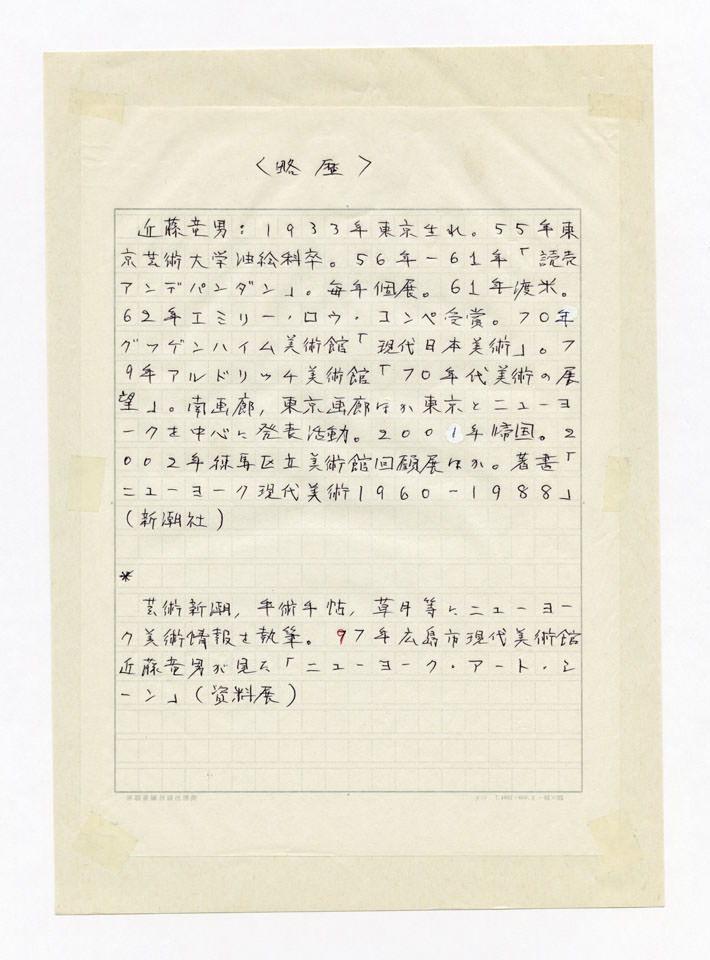 〈略歴〉
近藤竜男：1933年東京生れ。55年東
京芸術大学油絵科卒。56年－61年「読売
アンデパンダン」。毎年個展。61年渡米。
62年エミリー・ロウ・コンペ受賞。70年
グッゲンハイム美術館「現代日本美術」。7
9年アルドリッチ美術館「70年代美術の展
望」。南画廊，東京画廊ほか東京とニューヨ
ークを中心に発表活動。2001年帰国。2
002年練馬区立美術館回顧展ほか。著書「
ニューヨーク現代美術1960－1988」
（新潮社）
*
芸術新潮，手術手帖，草月等にニューヨー
ク美術情報を執筆。97年広島市現代美術館
近藤竜男が見た「ニューヨーク・アート・シ
ーン」（資料展）